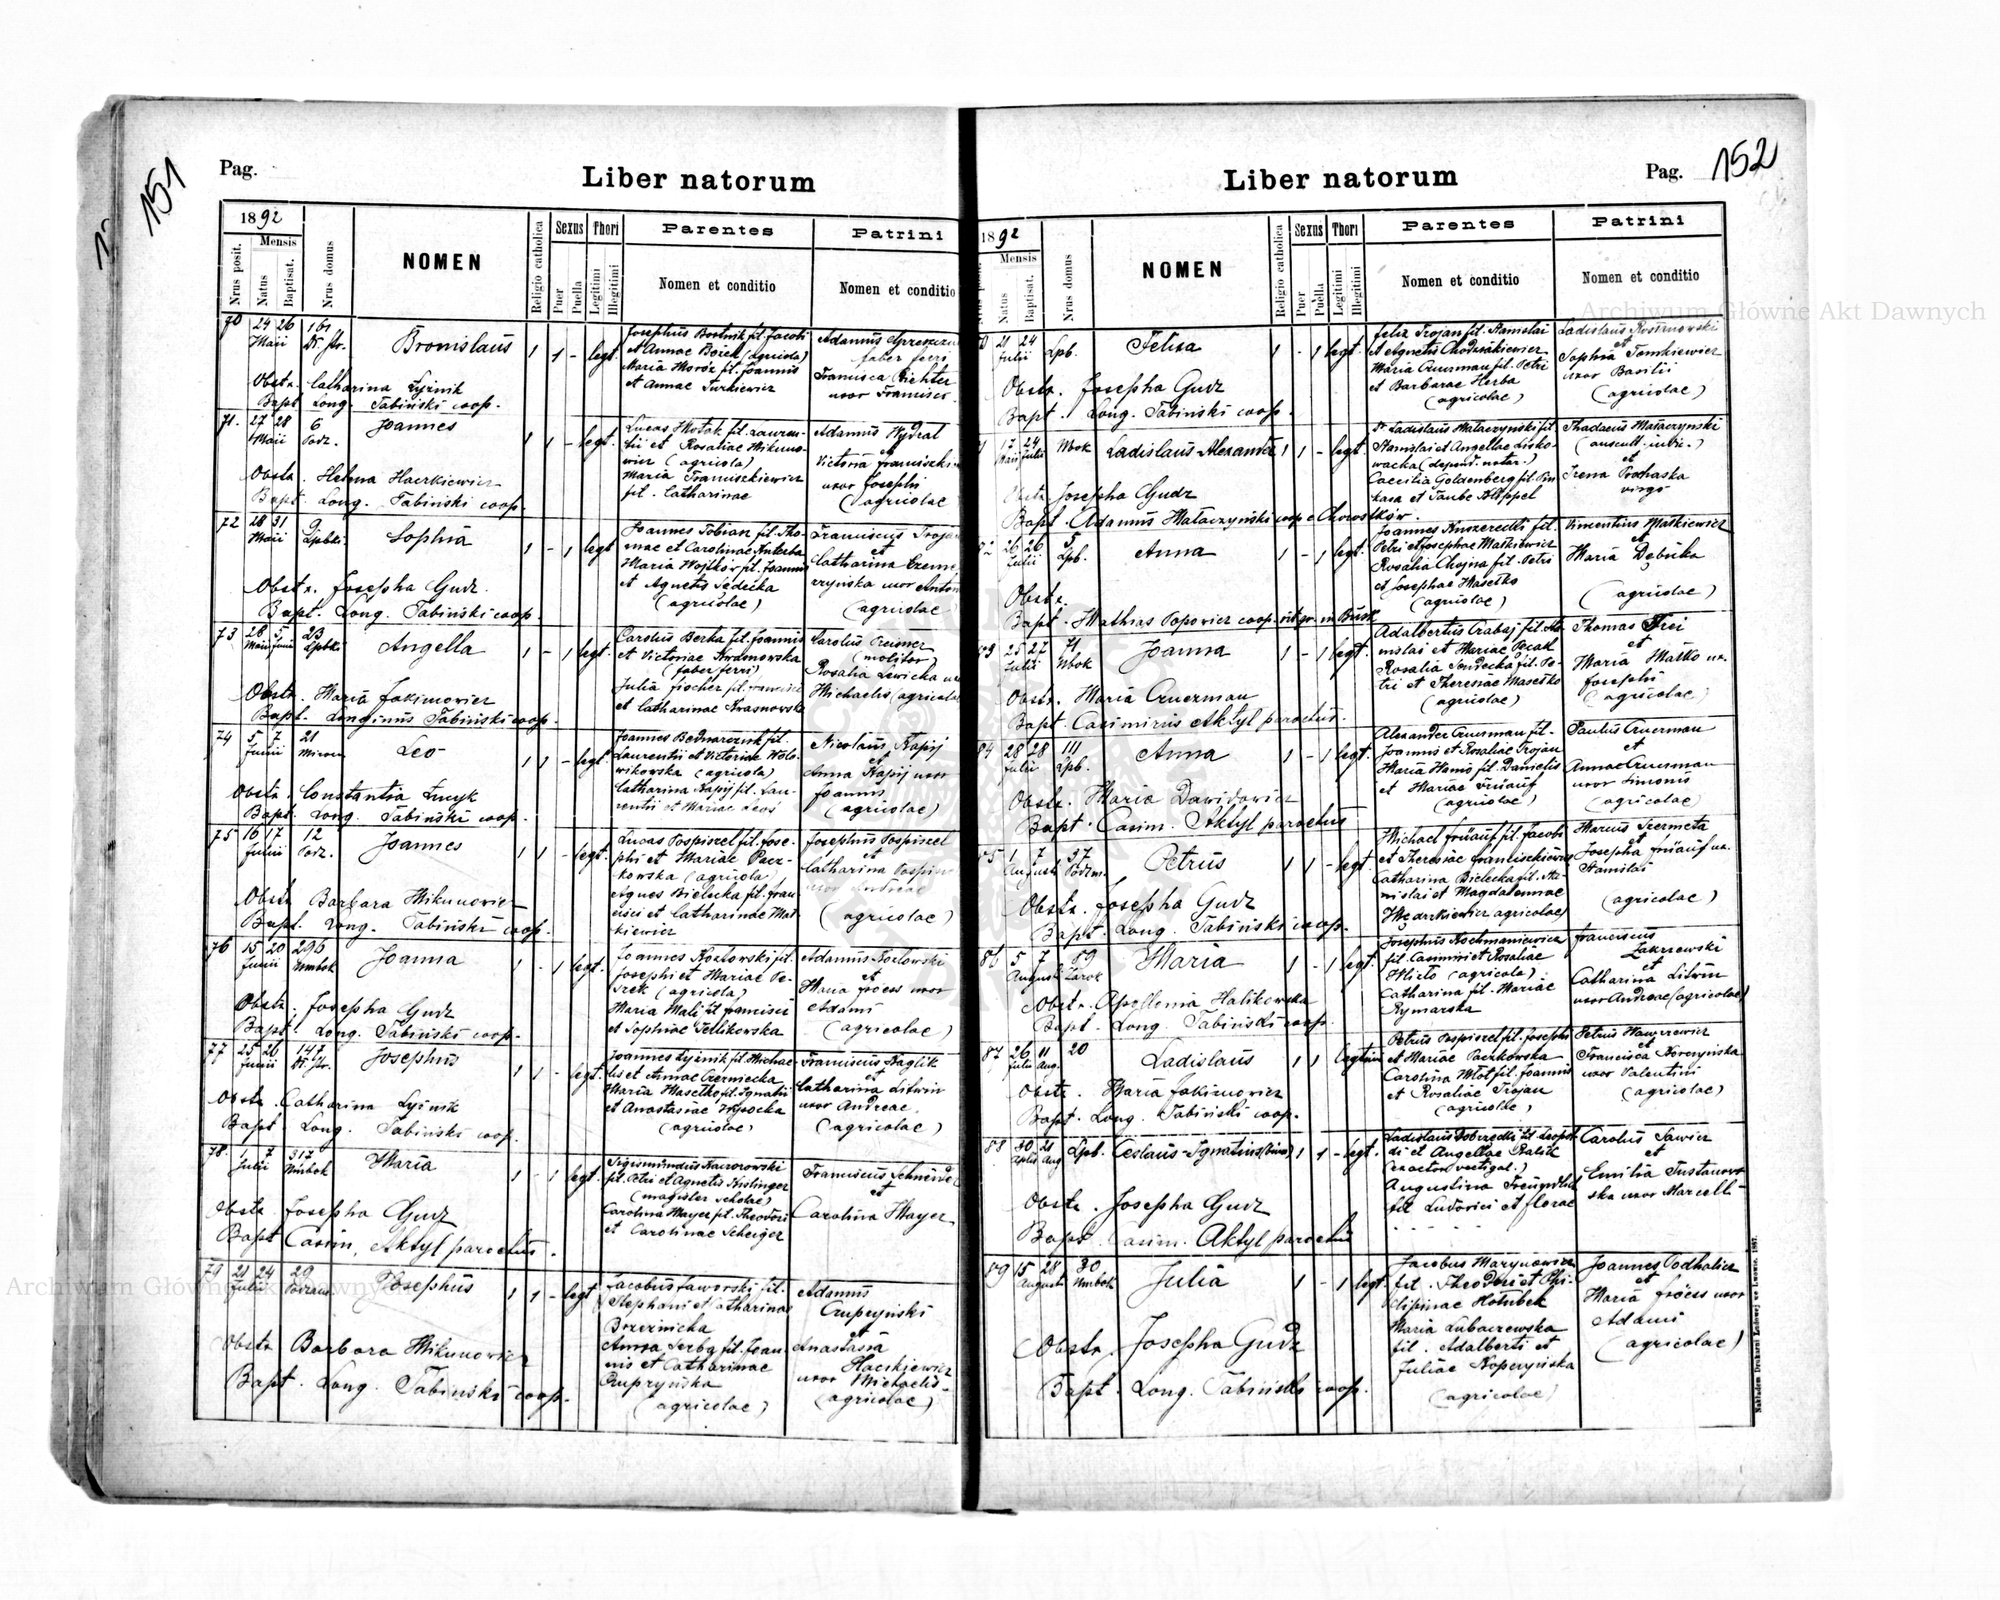 151
Pag.
Liber natorum
1892
Mensis
Nrus posit.
Natus
Baptisat.
Nrus domus
NOMEN
Religio catholica
Sexus
Puer
Puella
Thori
Legitimi
Illegitimi
Parentes
Nomen et conditio
Patrini
Nomen et conditio
70 24 26 161 Bronislaus 1 1 - legt.
Maii
Josephus Bortnik fil. Jacobi
et Annae (agricola)
Maria Moroz fil. Joannis
et Annae Turkiewicz
Adamus
faber ferri
Francisca Richter
uxor
Obstr. Catharina Lyźnik
Bapt. Long. Tabiński coop.
71. 27 28 6 Joannes 1 1 - legt.
Maii Podz.
Lucas fil. Lauren-
tii et Rosaliae Mikuno-
wicz (agricola)
Maria Franciszkiewicz
fil. Catharinae
Adamus Wydrat
et
Victoria
uxor Josephi
(agricolae
Obstr. Helena Haczkiewicz
Bapt. Long. Tabiński coop.
72 28 31 9 Sophia 1 - 1 legt
Maii
Joannes Tobian fil. Tho-
mae et Carolinae
Maria Wojtków fil. Joannis
et Agnetis Sedecka
(agricolae)
Franciscus Trojan
et
Catharina
uxor
(agricolae
Obstr. Josepha Gudz.
Bapt. Long. Tabiński coop.
73 28 5 23 Angella 1 - 1 legt.
Maii Junii
Carolus Berka fil. Joannis
et Victoriae Krasnowska
(faber ferri)
Julia Fischer fil. Francisci
et Catharinae Krasnowska
Carolus
(molitor)
Rosalia Lewicka
Michaelis (agricolae
Obstr. Maria Jakimowicz
Bapt. Longinus Tabiński coop.
74 5 7 21 Leo 1 1 - legt
Junii
Joannes Bednarczuk fil.
Laurentii et Victoriae Woło-
wikowska (agricola)
Catharina Kapij fil. Lau-
rentii et Mariae
Nicolaus Kapij
et
Anna Kapij uxor
Joannis
(agricolae)
Obstr. Constantia
Bapt. Long. Tabiński coop.
75 16 17 12 Joannes 1 1 - legt.
Junii Podz.
Lucas Pospiszel fil. Jose-
phi et Mariae Pacz-
kowska (agricola)
Agnes Bielecka fil. Fran-
cisci et Catharinae Mat-
kiewicz
Josephus Pospiszel
et
Catharina
uxor Andreae
(agricolae)
Obstr. Barbara Mikunowicz
Bapt. Long. Tabiński coop.
76 15 20 296 Joanna 1 - 1 legt.
Junii
Joannes Kozłowski fil.
Josephi et Mariae
(agricola)
Maria Mali fil. Francisci
et Sophiae Tellikowska
Adamus Kozłowski
et
Maria uxor
Adami
(agricolae)
Obstr. Josepha Gudz
Bapt. Long. Tabiński coop.
77 25 26 147 Josephus 1 1 - legt.
Junii
Joannes Lyźnik fil. Michae-
lis et Annae Czerniecka
Maria Masełko fil. Ignatii
et Anastasiae Wysocka
(agricolae)
Franciscus
et
Catharina Litwin
uxor Andreae.
(agricolae)
Obstr. Catharina Lyźnik
Bapt. Long. Tabiński coop.
78. 1 7 317 Maria 1 - 1 legt.
Julii
Sigismundus Kaczorowski
fil. Petri et Agnetis Kislinger
(magister scholae)
Carolina Mayer fil. Theodori
et Carolinae
Franciscus Schneider
et
Carolina Mayer
Obstr. Josepha Gudz
Bapt. Casim. Aktyl parochus.
79 21 24 29 Josephus 1 1 - legt
Julii
Jacobus Jaworski fil.
Stephani et Catharinae
Brzezinicka
Anna Serba fil. Joan-
nis et Catharinae
Czupryńska
(agricolae)
Adamus
Czupryński
et
Anastasia
Haczkiewicz
uxor Michaelis
(agricolae)
Obstr. Barbara Mikunowicz
Bapt. Long. Tabiński coop.
Liber natorum
Pag. 152
1892
Mensis
Natus
Baptisat.
Nrus domus
NOMEN
Religio catholica
Sexus
Puer
Puella
Thori
Legitimi
Illegitimi
Parentes
Nomen et conditio
Patrini
Nomen et conditio
21 24 Lpb. Felixa 1 - 1 legt.
Julii
Felix Trojan fil. Stanislai
et Agnetis
Maria Cruzman fil. Petri
et Barbarae Herba
(agricolae)
Ladislaus
et
Sophia Tomkiewicz
uxor Basilii
(agricolae)
Obstr. Josepha Gudz
Bapt. Long. Tabiński coop.
17 24 Ladislaus Alexander 1 1 - legt.
Maii Julii
Ladislaus Mataczyński fil.
Stanislai et Angellae
(depend. notar.)
Caecilia Goldenberg fil. Pin-
kasa et Taube Klippel
Thadaeus Mataczynski
et
Irena Prochaska
virgo
Obstr. Josepha Gudz
Bapt. Adamus Mataczyński coop. e Chorostków.
26 26 5 Anna 1 - 1 legt.
Julii Lpb.
Joannes fil.
Petri et Josephae Matkiewicz
Rosalia Chojna fil. Petri
et Josephae Masełko
(agricolae)
Vincentius Matkiewicz
et
Maria Dębicka
(agricolae)
Obstr.
Bapt. Mathias Popowicz coop. rit. gr. in Busk
25 27 71 Joanna 1 - 1 legt.
Julii
Adalbertus Crabaj fil. Sta-
nislai et Mariae Pecak
Rosalia fil. Pe-
tri et Theresiae Masełko
(agricolae)
Thomas
et
Maria Matko ux.
Josephi
(agricolae)
Obstr. Maria Cruzman
Bapt. Casimirus Aktyl parochus.
84 28 28 111 Anna 1 - 1 legt.
Julii Lpb.
Alexander Cruzman fil.
Joannis et Rosaliae Trojan
Maria fil. Danielis
et Mariae
(agricolae)
Paulus Cruzman
et
Anna Cruzman
uxor Simonis
(agricolae)
Obstr. Maria Dawidowicz
Bapt. Casim. Aktyl parochus
1 7 37 Petrus 1 1 - legt
Augusti
Michael Früauf fil. Jacobi
et Theresiae Franciszkiewicz
Catharina Bielecka fil. Sta-
nislai et Magdalenae
(agricolae)
Marcus Szermeta
et
Josepha Früauf ux.
Stanislai
(agricolae)
Obstr. Josepha Gudz
Bapt. Long. Tabiński coop.
86 5 7 Maria 1 - 1 legt.
Augusti
Josephus Kochmaniewicz
fil. Casimiri et Rosaliae
(agricola)
Catharina fil. Mariae
Rymarska
Franciscus
Zakrzewski
et
Catharina Litwin
uxor Andreae (agricolae)
Obstr. Apollonia Halikowska
Bapt. Long. Tabiński coop.
87 26 11 20 Ladislaus 1 1
Julii Aug.
Petrus Pospiszel fil. Josephi
et Mariae Paczkowska
Carolina Młot fil. Joannis
et Rosaliae Trojan
(agricolae)
Petrus Wawrzewicz
et
Francisca Korczyńska
uxor Valentini
(agricolae)
Obstr. Maria Jakimowicz
Bapt. Long. Tabiński coop.
88 30 21 Lpb. Ceslaus-Ignatius 1 1 - legt.
Aprilis Aug.
Ladislaus fil. Leopol-
di et Angellae
(exactor vectigal.)
Augustina
fil. Ludovici et Florae
Carolus Sawicz
et
Emilia Tustanow-
ska uxor Marcelli
Obstr. Josepha Gudz
Bapt. Casim. Aktyl parochus
89 15 28 30 Julia 1 - 1 legt.
Augusti
Jacobus Marynowicz
fil. Theodori et Phi-
lippinae Hołubek
Maria Lubaczewska
fil. Adalberti et
Juliae Kopczyńska
(agricolae)
Joannes Podhalicz
et
Maria uxor
Adami
(agricolae)
Obstr. Josepha Gudz
Bapt. Long. Tabiński coop.
Nakładem Drukarni Ludowej we Lwowie. 1887.
Archiwum Główne Akt Dawnych
Archiwum Główne Akt Dawnych